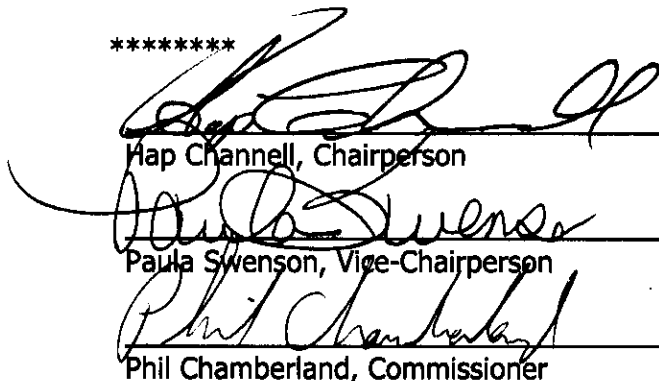 ********
Hap Channell
Hap Channell, Chairperson
Paula Swenson
Paula Swenson, Vice-Chairperson
Phil Chamberland
Phil Chamberland, Commissioner